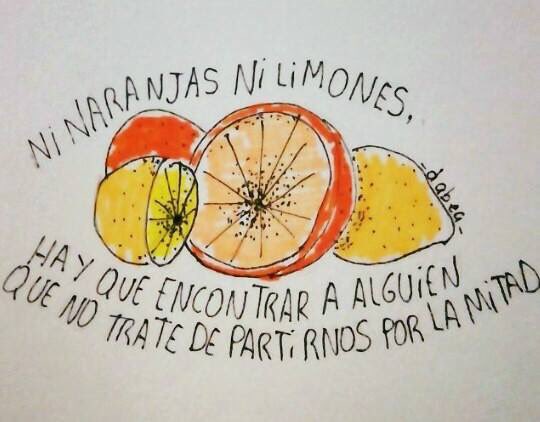 Ni NARANJAS Ni LiMONES,
-dabea-
HAY QUE ENCONTRAR A ALGUiEN
QUE NO TRATE DE PARTiRNOS POR LA MiTAD